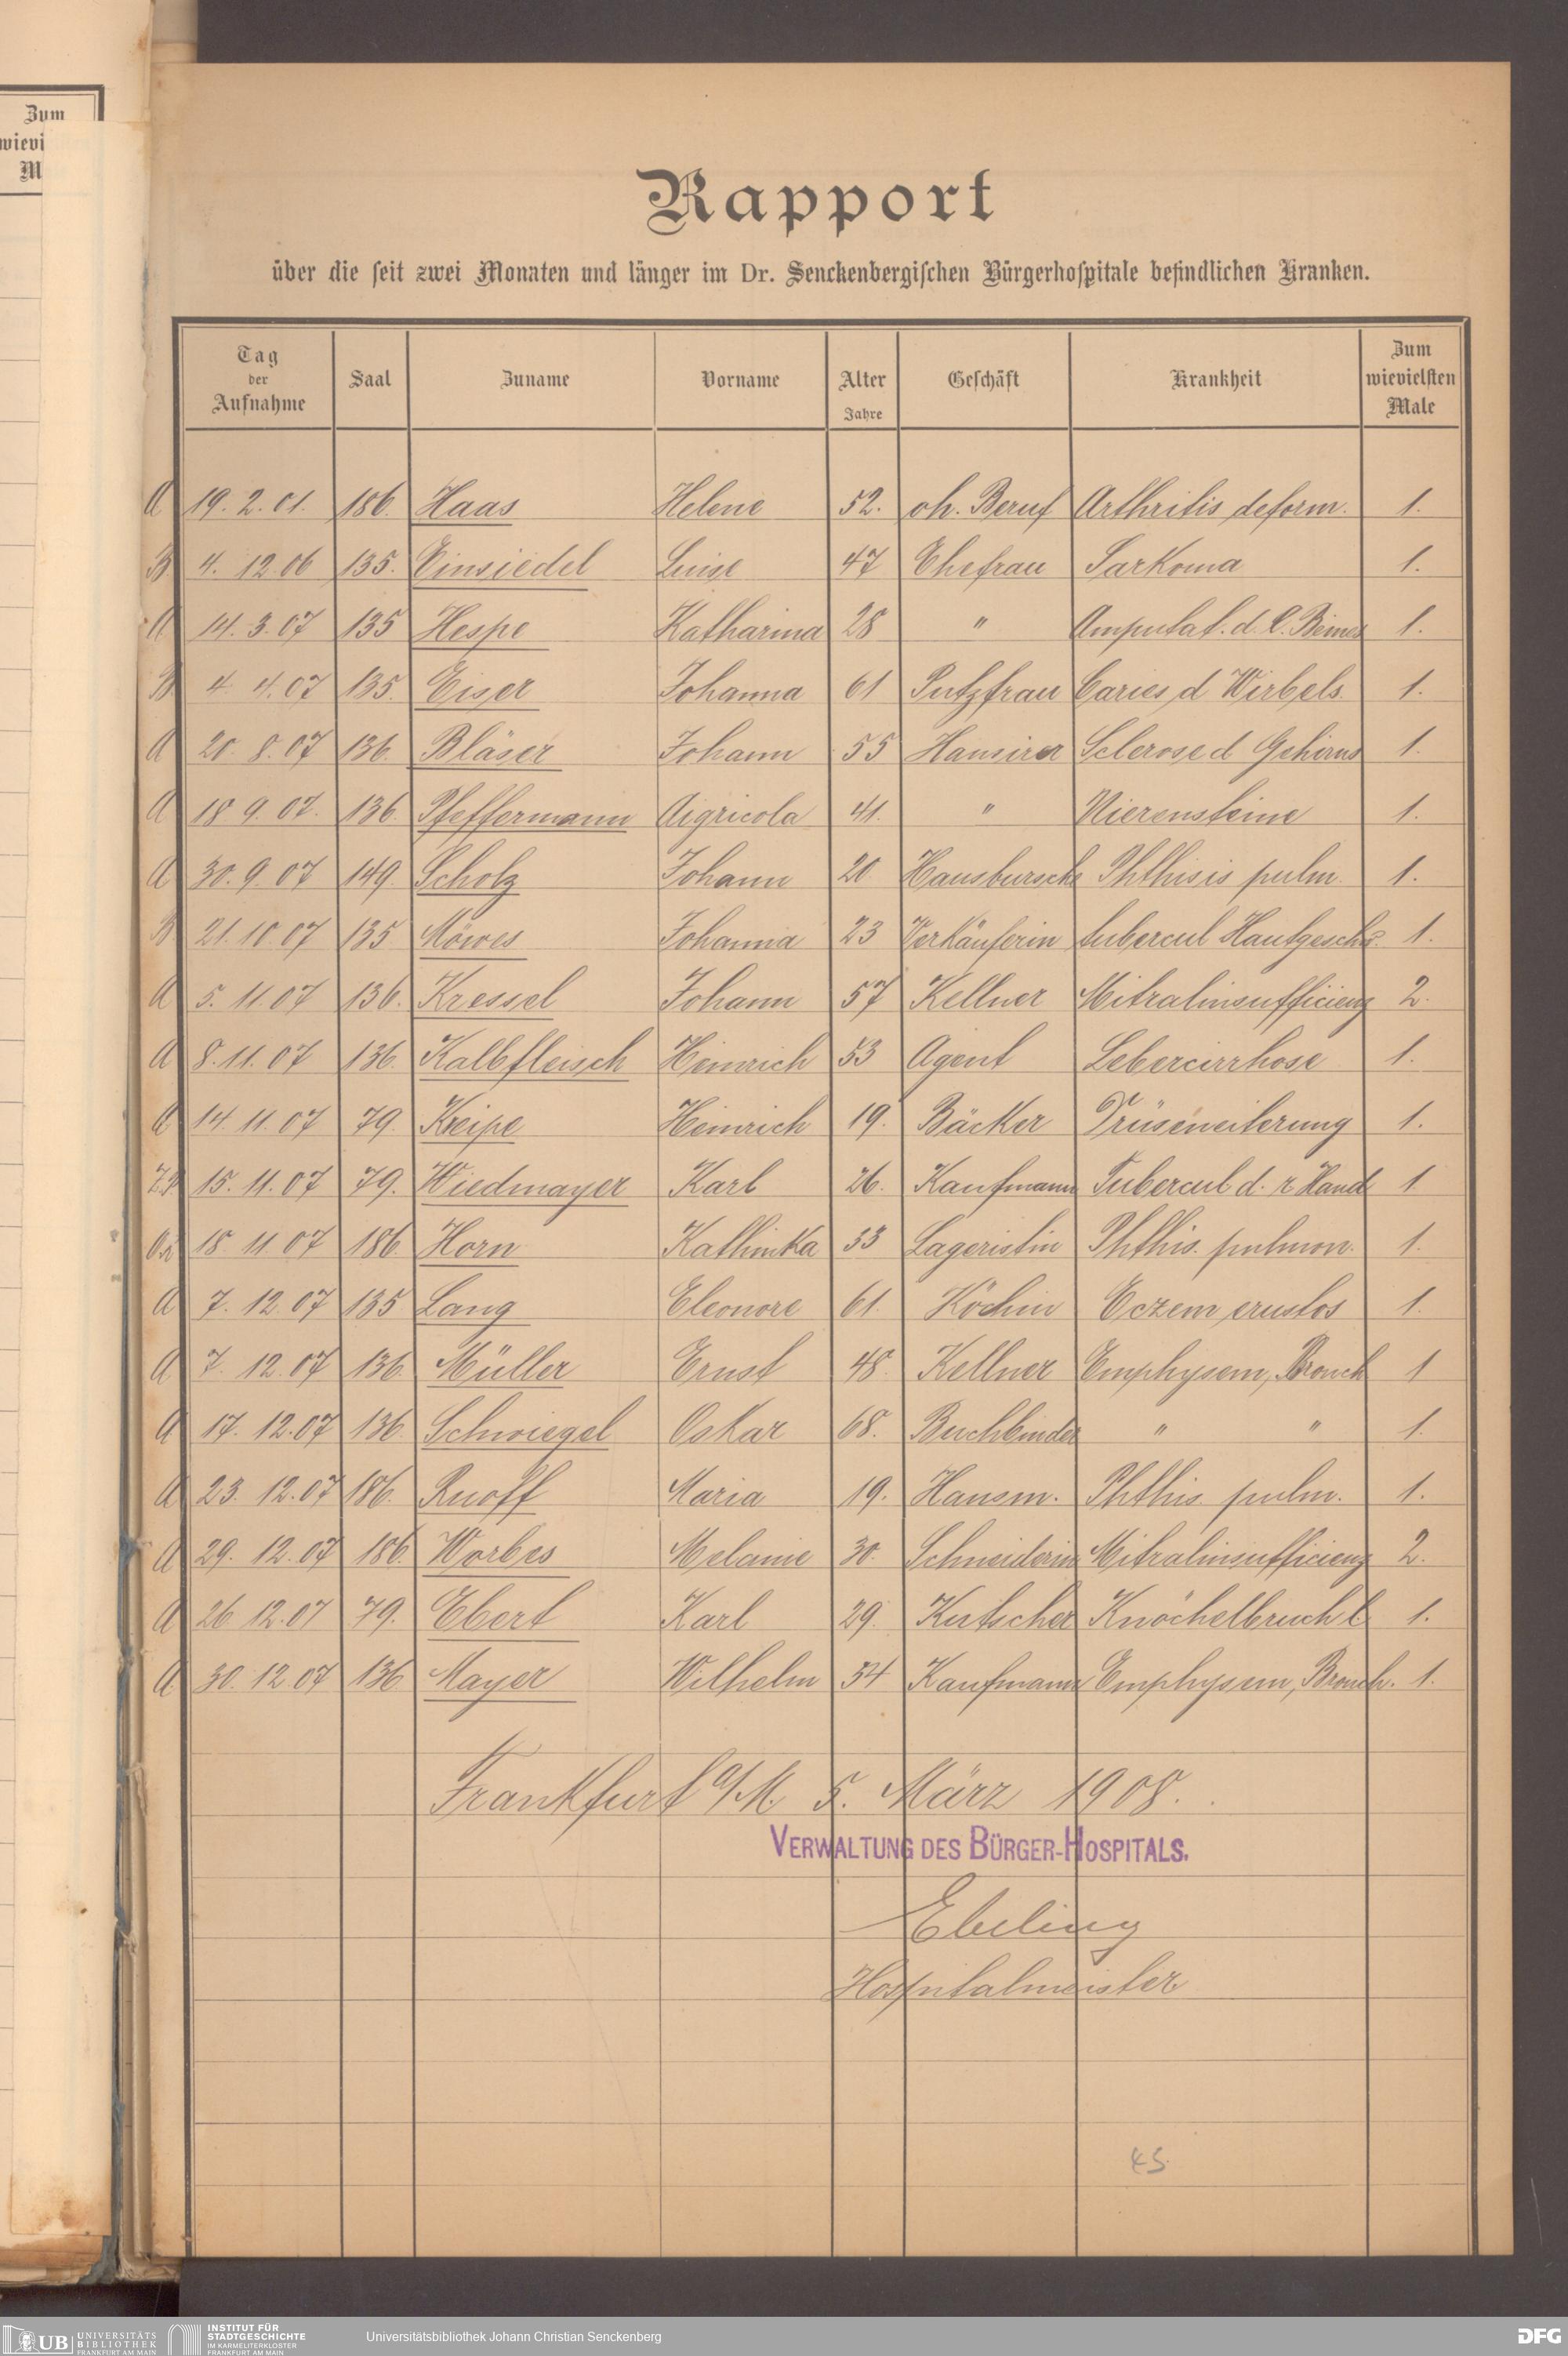 Zum
wievi
M
Rapport
über die seit zwei Monaten und länger im Dr. Senckenbergischen Bürgerhospitale befindlichen Kranken.
Tag der Aufnahme Saal Zuname Vorname Alter Jahre Geschäft Krankheit Zum wievielsten Male
A 19. 2. 01. 186. Haas Helene 52. oh. Beruf Arthritis deform. 1.
B 4. 12. 06 135. Einsiedel Luise 47 Ehefrau Sarkoma 1.
A 14. 3. 07 135 Hespe Katharina 28 " Amputat. d. l. Beines 1.
B 4. 4. 07 135. Eiser Johanna 61 Putzfrau Caries d Wirbels. 1.
A 20. 8. 07 136. Bläser Johann 55 Hausirer Sclerose d Gehirns 1.
A 18 9. 07. 136. Pfeffermann Aigricola 41. " Nierensteine 1.
A 30. 9. 07 149. Scholz Johann 20 Hausbursche Phthisis pulm. 1.
B 21. 10. 07 135 Möwes Johanna 23 Verkäuferin tubercul Hautgeschw. 1.
A 5. 11. 07 136. Kressel Johann 57 Kellner Mitralinsufficienz 2.
A 8. 11. 07 136. Kalbfleisch Heinrich 53 Agent Lebercirrhose 1.
A 14. 11. 07 79. Kreipe Heinrich 19. Bäcker Drüseneiterung 1.
15. 11. 07 79. Wiedmayer Karl 26. Kaufmann Tubercul d. r Hand 1
18. 11 07 186. Horn Kathinka 53 Lageristin Phthis. pulmon. 1.
A 7. 12. 07 135 Lang Eleonore 61. Köchin Eczem crustos 1.
A 7. 12. 07 136. Müller Ernst 48. Kellner Emphysem, Bronch 1
A 17. 12. 07 136 Schwiegel Oskar 68. Buchbinder " " 1.
A 23. 12. 07 186. Ruoff Maria 19. Hausm. Phthis. pulm. 1.
A 29. 12. 07 186. Worbes Melanie 30. Schneiderin Mitralinsufficienz 2.
A 26 12. 07 79. Ebert Karl 29. Kutscher Knöchelbruch l. 1.
A 30. 12. 07 136. Mayer Wilhelm 54 Kaufmann Emphysem, Bronch. 1.
Frankfurt a/M. 5. März 1908.
VERWALTUNG DES BÜRGER-HOSPITALS.
Ebeling
Hospitalmeister
45
UB UNIVERSITÄTS BIBLIOTHEK FRANKFURT AM MAIN
INSTITUT FÜR STADTGESCHICHTE IM KARMELITERKLOSTER FRANKFURT AM MAIN
Universitätsbibliothek Johann Christian Senckenberg
DFG